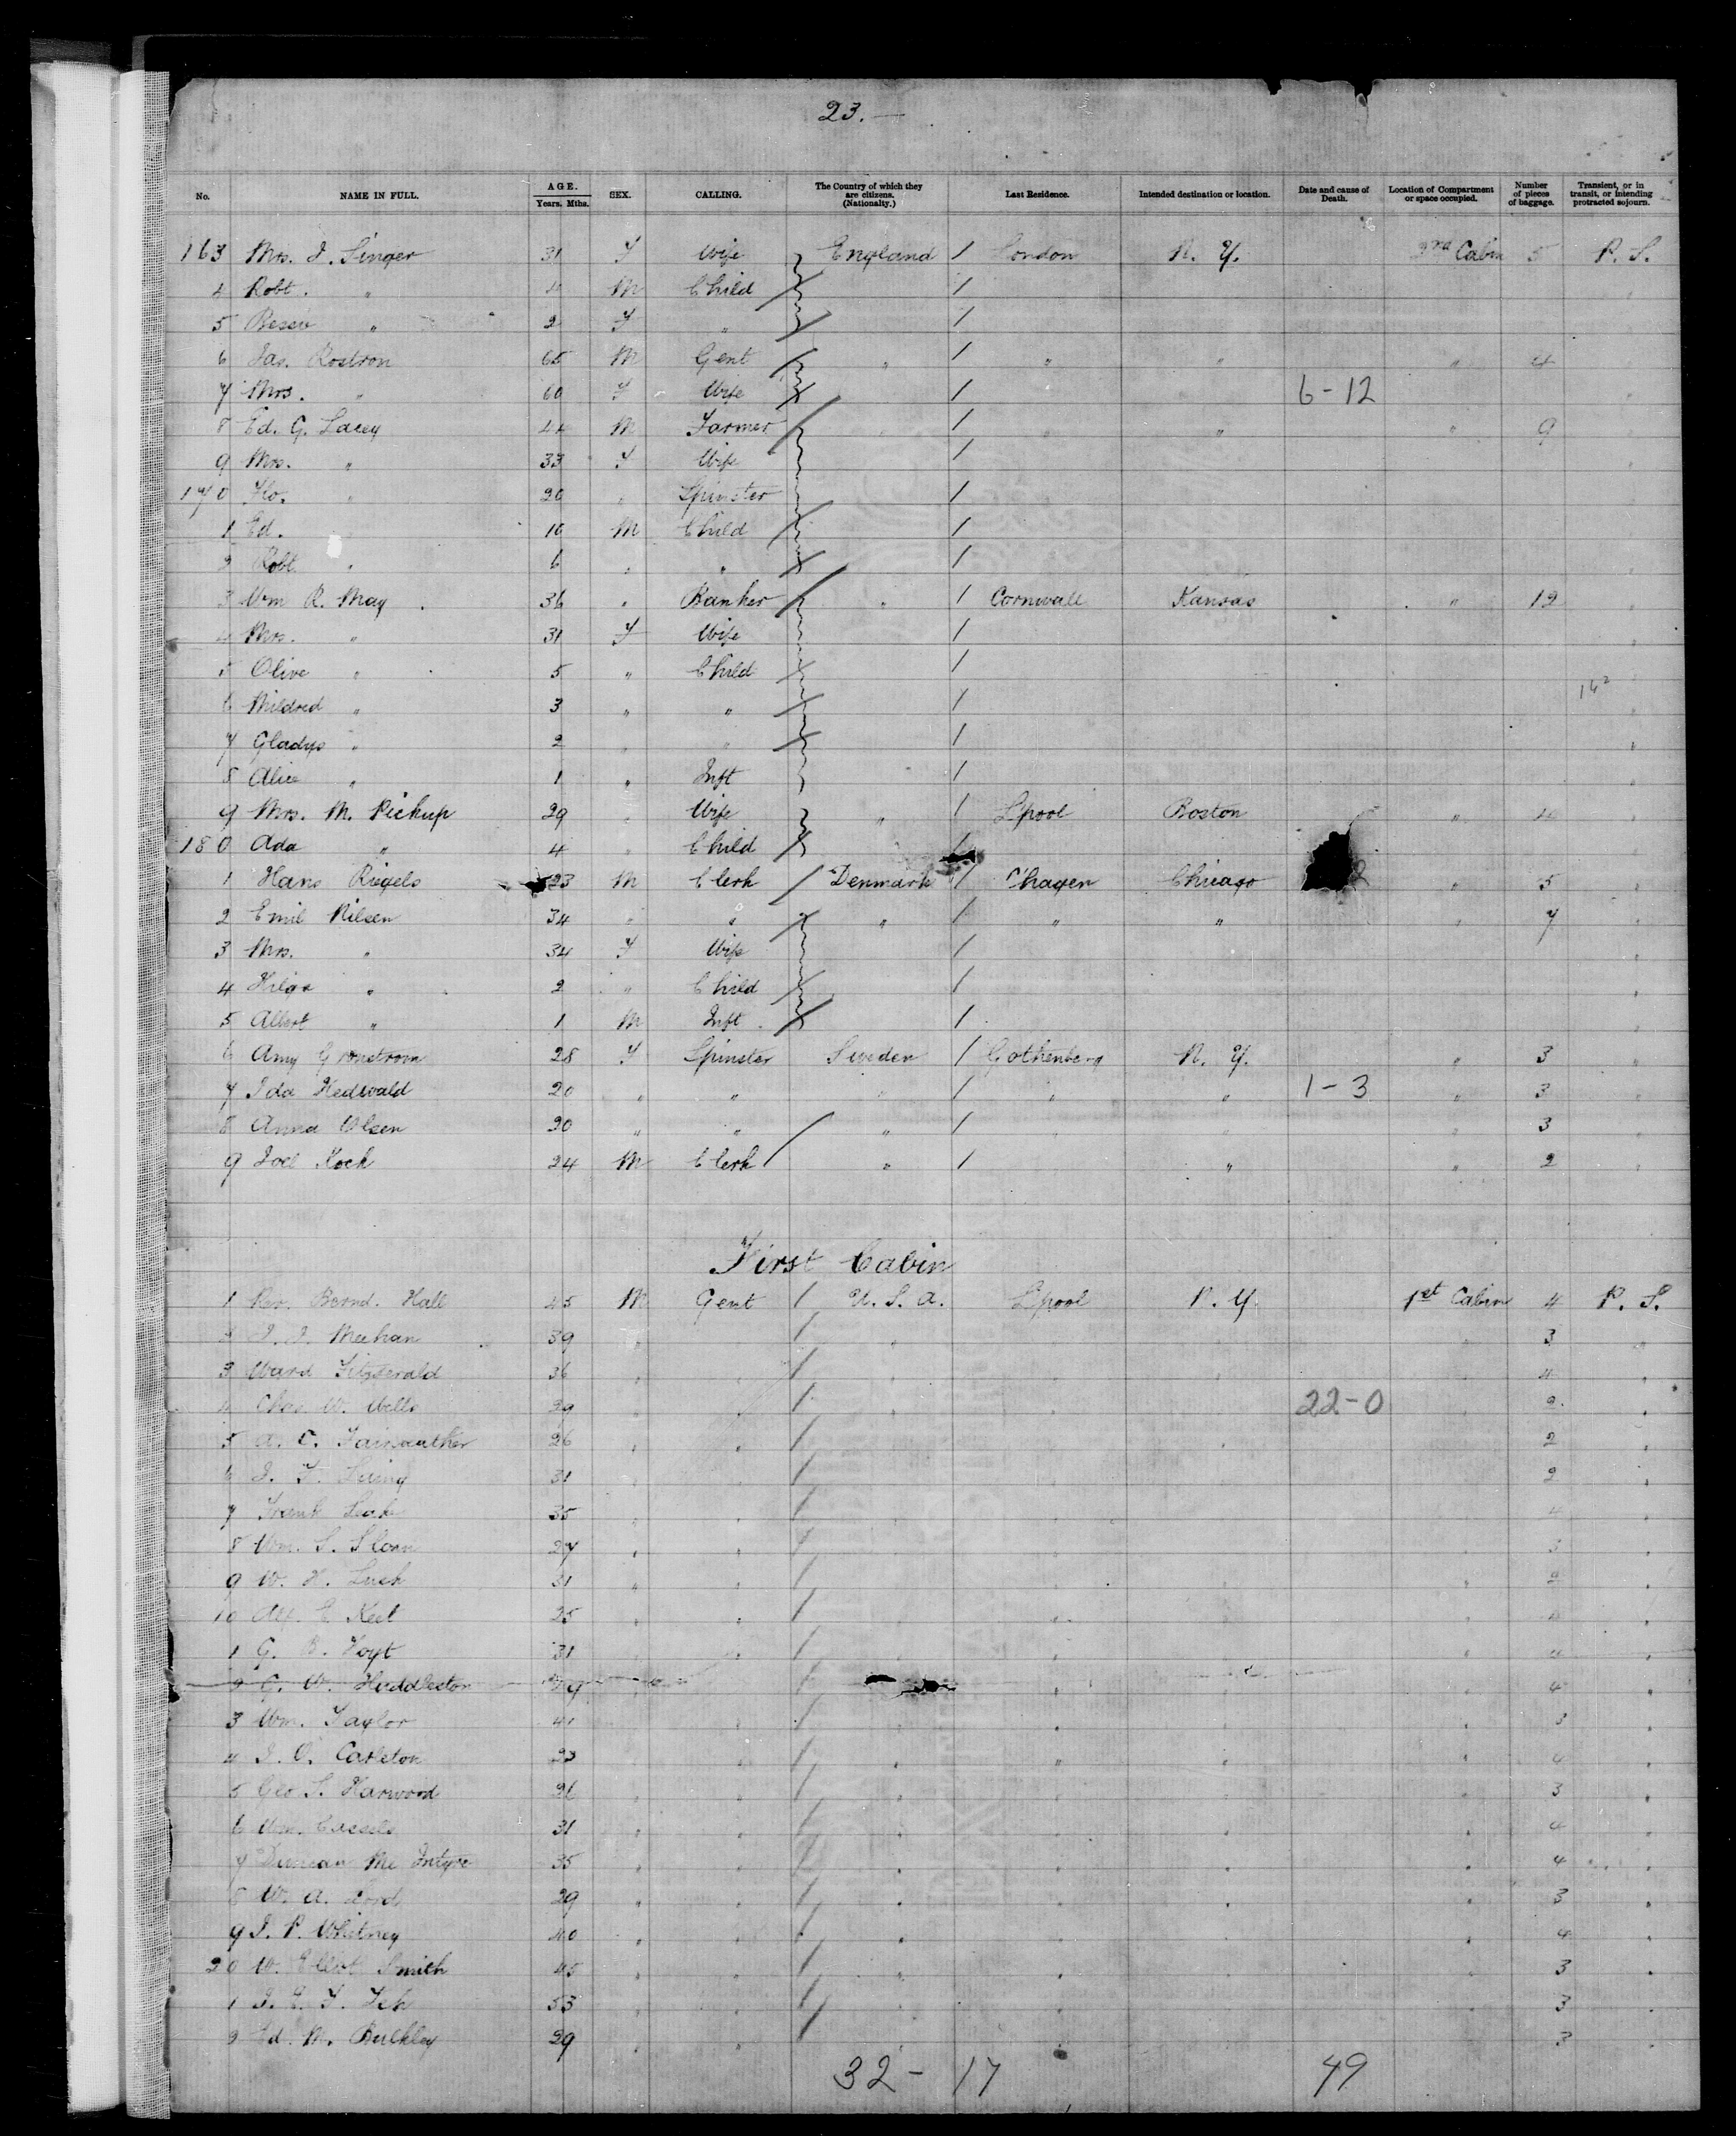 23. —
No. NAME IN FULL. AGE. Years. Mths. SEX. CALLING. The Country of which they are citizens. (Nationalty.) Last Residence. Intended destination or location. Date and cause of Death. Location of Compartment or space occupied. Number of pieces of baggage. Transient, or in transit, or intending protracted sojourn.
163 Mrs. J. Singer 31 F Wife England / London N. Y. 2nd Cabin 5 P. S.
4 Robt. " 4 M Child /
5 Bessie " 2 F " /
6 Jas. Rostron 65 M Gent " / " " " 4
7 Mrs. " 60 F Wife / 6-12
8 Ed. G. Lacey 44 M Farmer / " " 9
9 Mrs. " 33 F Wife /
170 Flo. " 20 " Spinster /
1 Ed. 10 M Child /
2 Robt. " 6 " " /
3 Wm R. May 36 " Banker " / Cornwall Kansas " 12
4 Mrs. " 31 F Wife /
5 Olive " 5 " Child /
6 Mildred " 3 " " /
7 Gladys " 2 " " /
8 Alice " 1 " Inft /
9 Mrs. M. Pickup 29 " Wife " / L'pool Boston "
180 Ada " 4 " Child /
1 Hans Riegels 23 M Clerk / Denmark / C'hagen Chicago " 5
2 Emil Nilsen 34 " " " / " " " 7
3 Mrs. " 34 F Wife /
4 Hilga " 2 " Child /
5 Albert " 1 M Inft /
6 Amy Gronstrom 28 F Spinster Sweden / Gothenberg N. Y. " 3
7 Ida Hedwald 20 " " " / " " 1-3 " 3
8 Anna Olsen 20 " " / " / " 3
9 Joel Koch 24 M Clerk / " / " " 2
First Cabin
1 Rev. Bernd. Hall 45 M Gent / U. S. A. L'pool N. Y. 1st Cabin 4 P. S.
2 Meehan 39 " / " 3
3 Ward Fitzgerald 36 " / 4
4 Chas. W. Wells 29 " / 22-0 2
5 A. C. Fairweather 26 " " / 2
6 31 " / 2
7 Frank Leake 35 " / 4
8 Wm. S. Sloan 27 " " / 3
9 W. H. Lush 31 " " / 2
10 Alf. E. Keet 25 " " /
1 G. B. Hoyt 31 " " / 4
2 G. W. Huddleston 29 / 4
3 Wm. Taylor 41 / 3
4 Carleton 33 / 4
5 Geo. S. Harwood 26 / 3
6 Wm. Cassels 31 / 4
7 Duncan Mc Intyre 35 / 4
8 W. A. Lord 29 / 3
9 J. P. Whitney 40 / 4
20 W. Elliot Smith 45 / 3
1 53 / 3
2 Ed. M. Bulkley 29 / 3
32 - 17 49